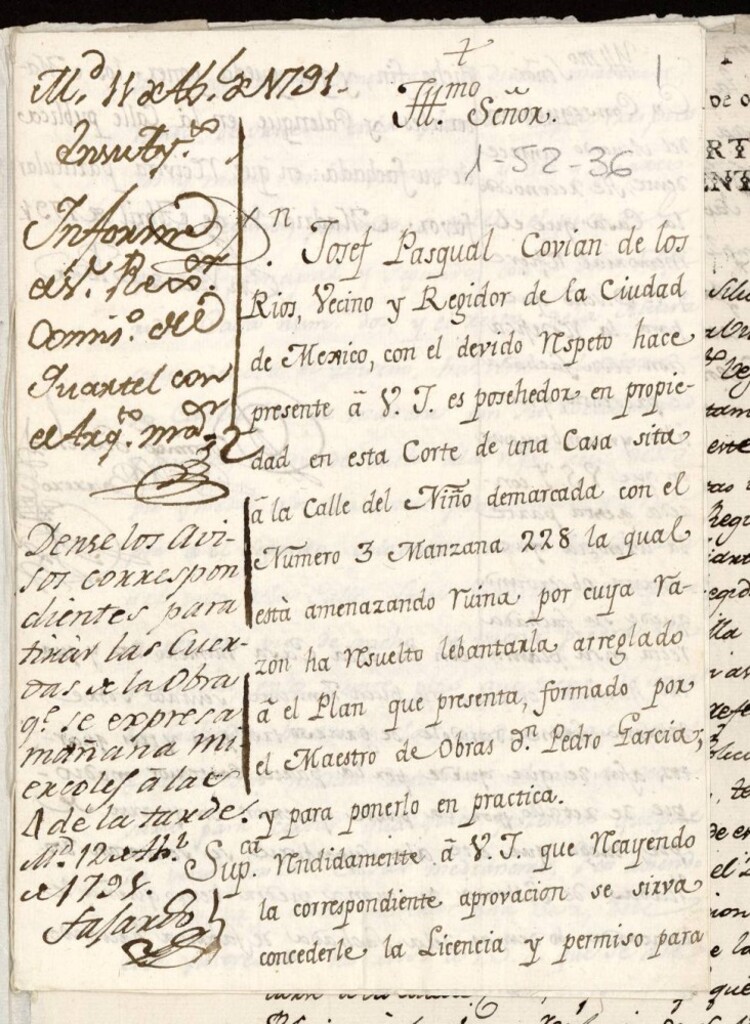 M.d 11 de Ab.l de 1791.
En su Ay.to
Informe
el S.r Rex.or
Comis.o del
Quartel con
el Arq.to m.or
Dense los Avi-
sos correspon
dientes para
tirar las Cuer-
das de la Obra
q.e se expresa
mañana mi-
ercoles a las
4 de la tarde.
M.d 12 de Ab.l
de 1791.
Ill.mo Señor.
1
1-52-36
D.n Josef Pasqual Covian de los
Rios, Vecino y Regidor de la Ciudad
de Mexico, con el devido respeto hace
presente â V. I. es posehedor en propie-
dad en esta Corte de una Casa sita
â la Calle del Niño demarcada con el
Numero 3 Manzana 228 la qual
està amenazando ruina por cuya ra-
zón ha resuelto lebantarla arreglado
â el Plan que presenta, formado por
el Maestro de Obras d.n Pedro Garcia;
y para ponerlo en practica.
Sup.ca rendidamente â V. I. que recayendo
la correspondiente aprovacion se sirva
concederle la Licencia y permiso para